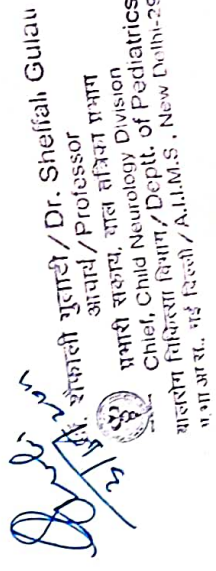 डॉ. शेफाली गुलाटी / Dr. Sheffali Gulati
आचार्य / Professor
प्रभारी संकाय, बाल तंत्रिका प्रभाग
Chief, Child Neurology Division
बालरोग चिकित्सा विभाग / Deptt. of Pediatrics
अ.भा.आ.सं., नई दिल्ली / A.I.I.M.S., New Delhi-29